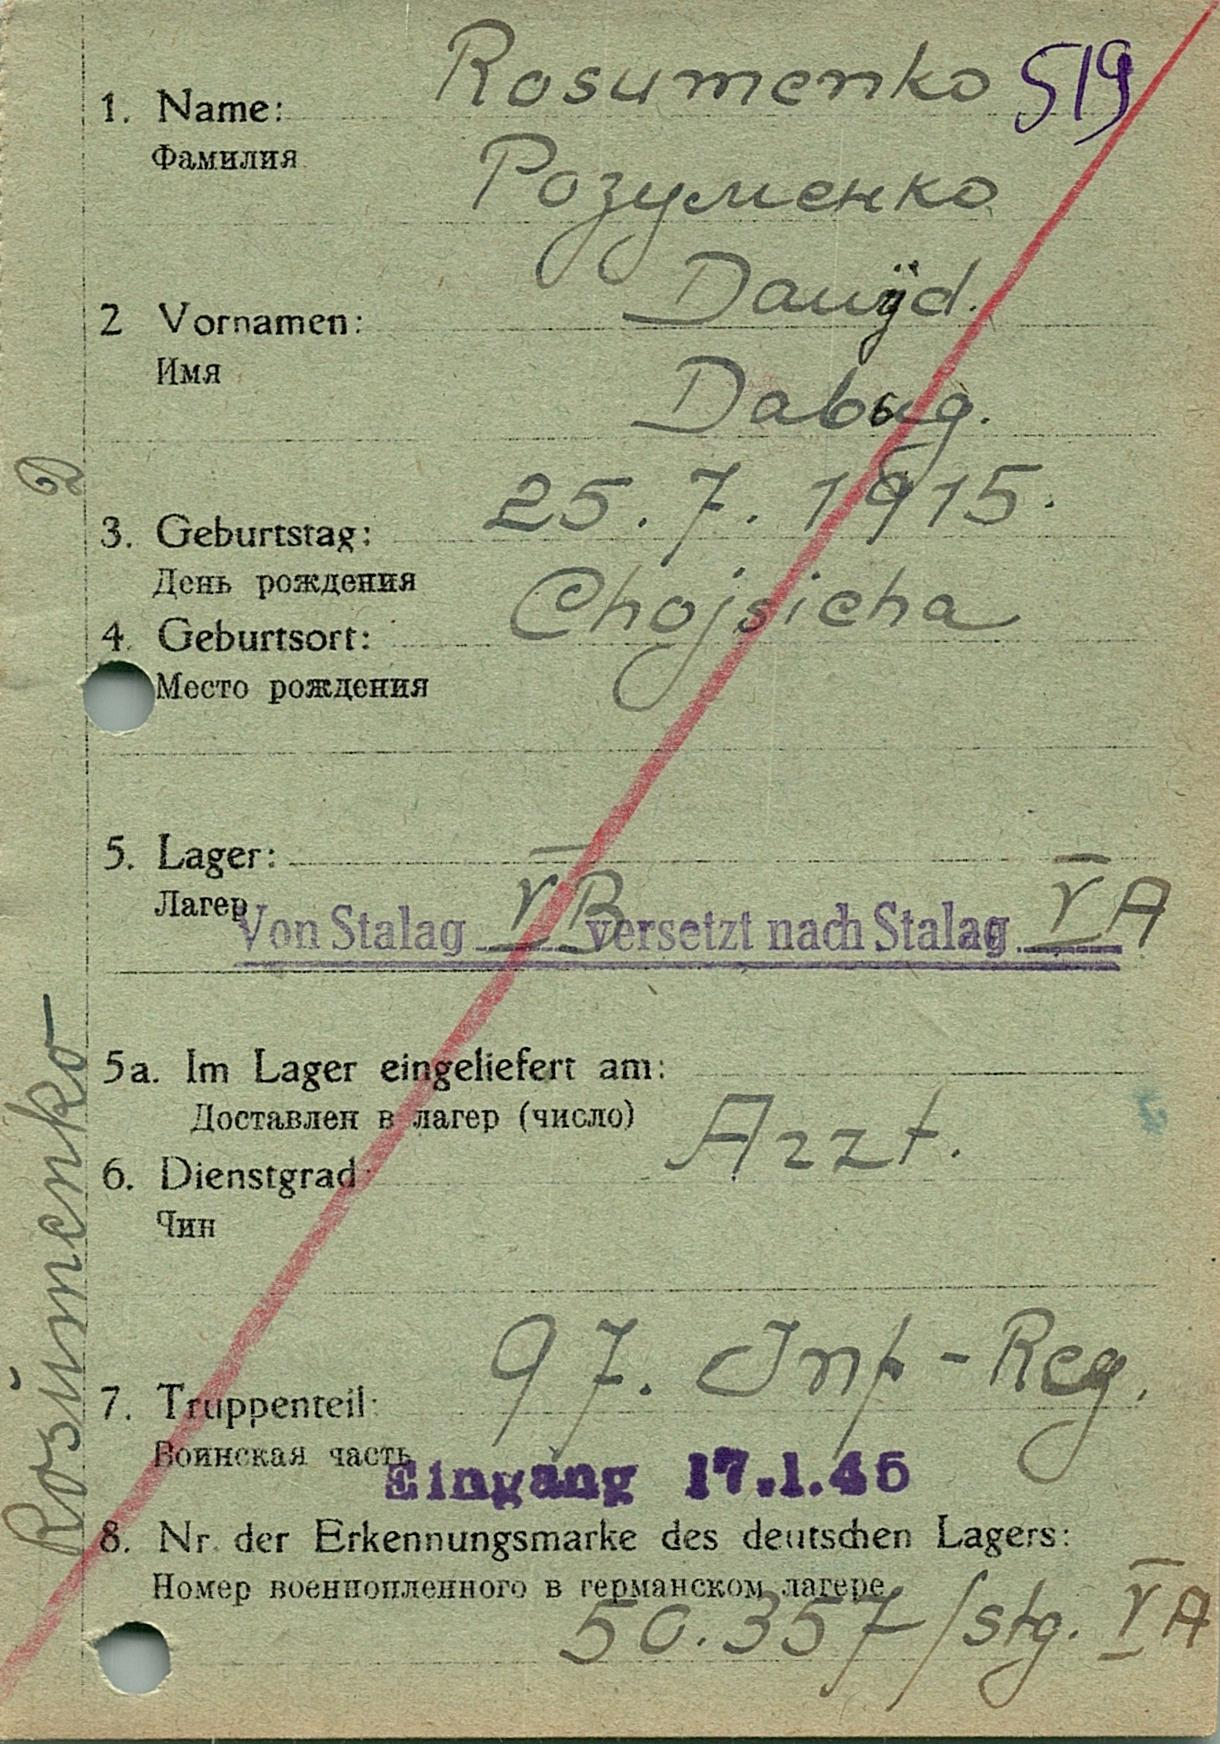 Rosumenko 519
1. Name:
Фамилия
Розуменко
Dawyd.
2 Vornamen:
Имя
Давыд.
25. 7. 1915.
3. Geburtstag:
День рождения
Chojsicha
4. Geburtsort:
Место рождения
5. Lager:
Лагер
Von Stalag V B versetzt nach Stalag V A
5a. Im Lager eingeliefert am:
Доставлен в лагер (число)
Arzt.
6. Dienstgrad:
Чин
97. Inf-Reg.
7. Truppenteil:
Воинская часть
Eingang 17.1.45
8. Nr. der Erkennungsmarke des deutschen Lagers:
Номер военнопленного в германском лагере
50.357/stg. V A
Rosumenko
D